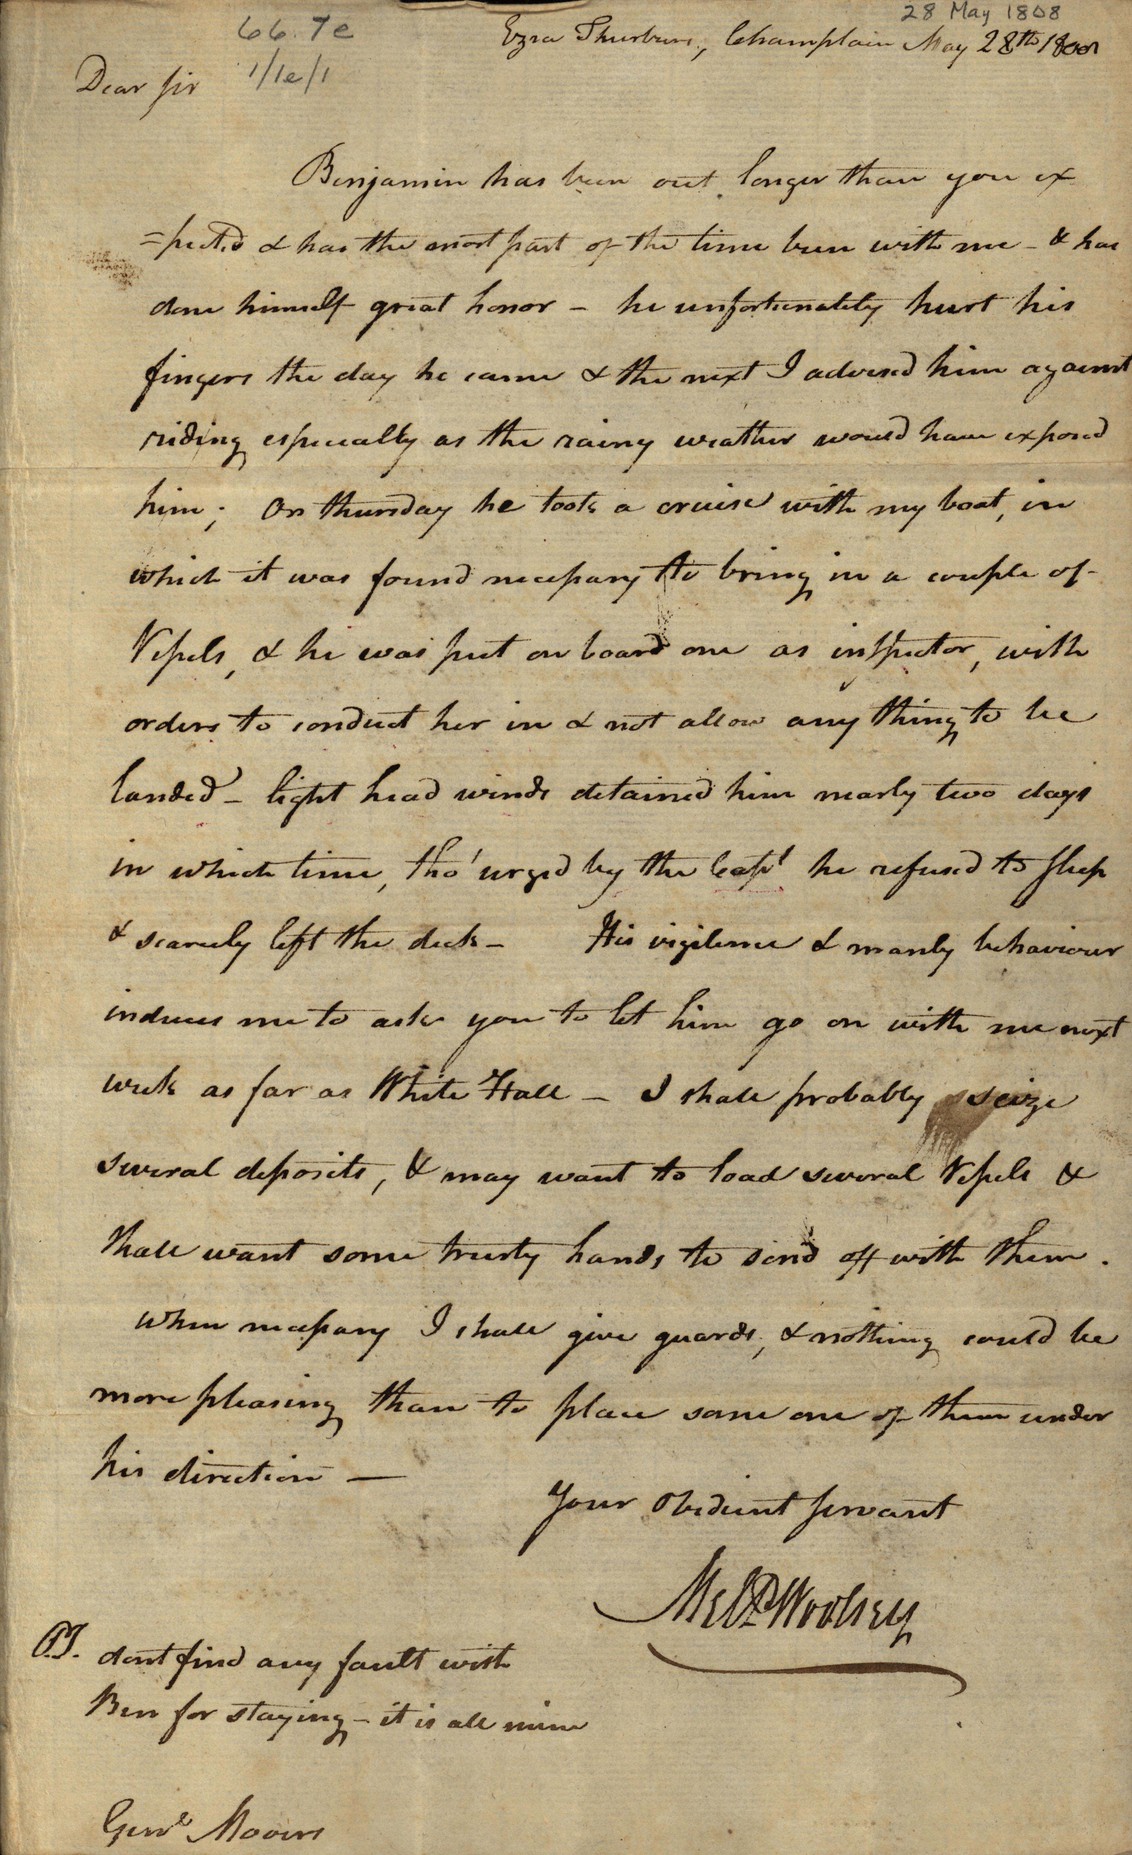 28 May 1808
66.7e
Ezra Thurbers, Champlain May 28th 1808
1/1e/1
Dear Sir
Benjamin has been out longer than you ex
=pected & has the most part of the time been with me - & has
done himself great honor - he unfortunately hurt his
fingers the day he came & the next I advised him against
riding especially as the rainy weather would have exposed
him; On thursday he took a cruise with my boat, in
which it was found necessary to bring in a couple of
Vessels, & he was put on board one as inspector, with
orders to conduct her in & not allow any thing to be
landed - light head winds detained him nearly two days
in which time, tho' urged by the Capt he refused to sleep
& scarcely left the deck - His vigilence & manly behaviour
induces me to ask you to let him go on with me next
week as far as White Hall - I shall probably seize
several deposits, & may want to load several Vessels &
shall want some trusty hands to send off with them.
When necessary I shall give guards, & nothing could be
more pleasing than to place some one of them under
his direction -
Your Obedient Servant
Mel L Woolsey
P.S. dont find any fault with
Ben for staying - it is all mine
Genl Mooers